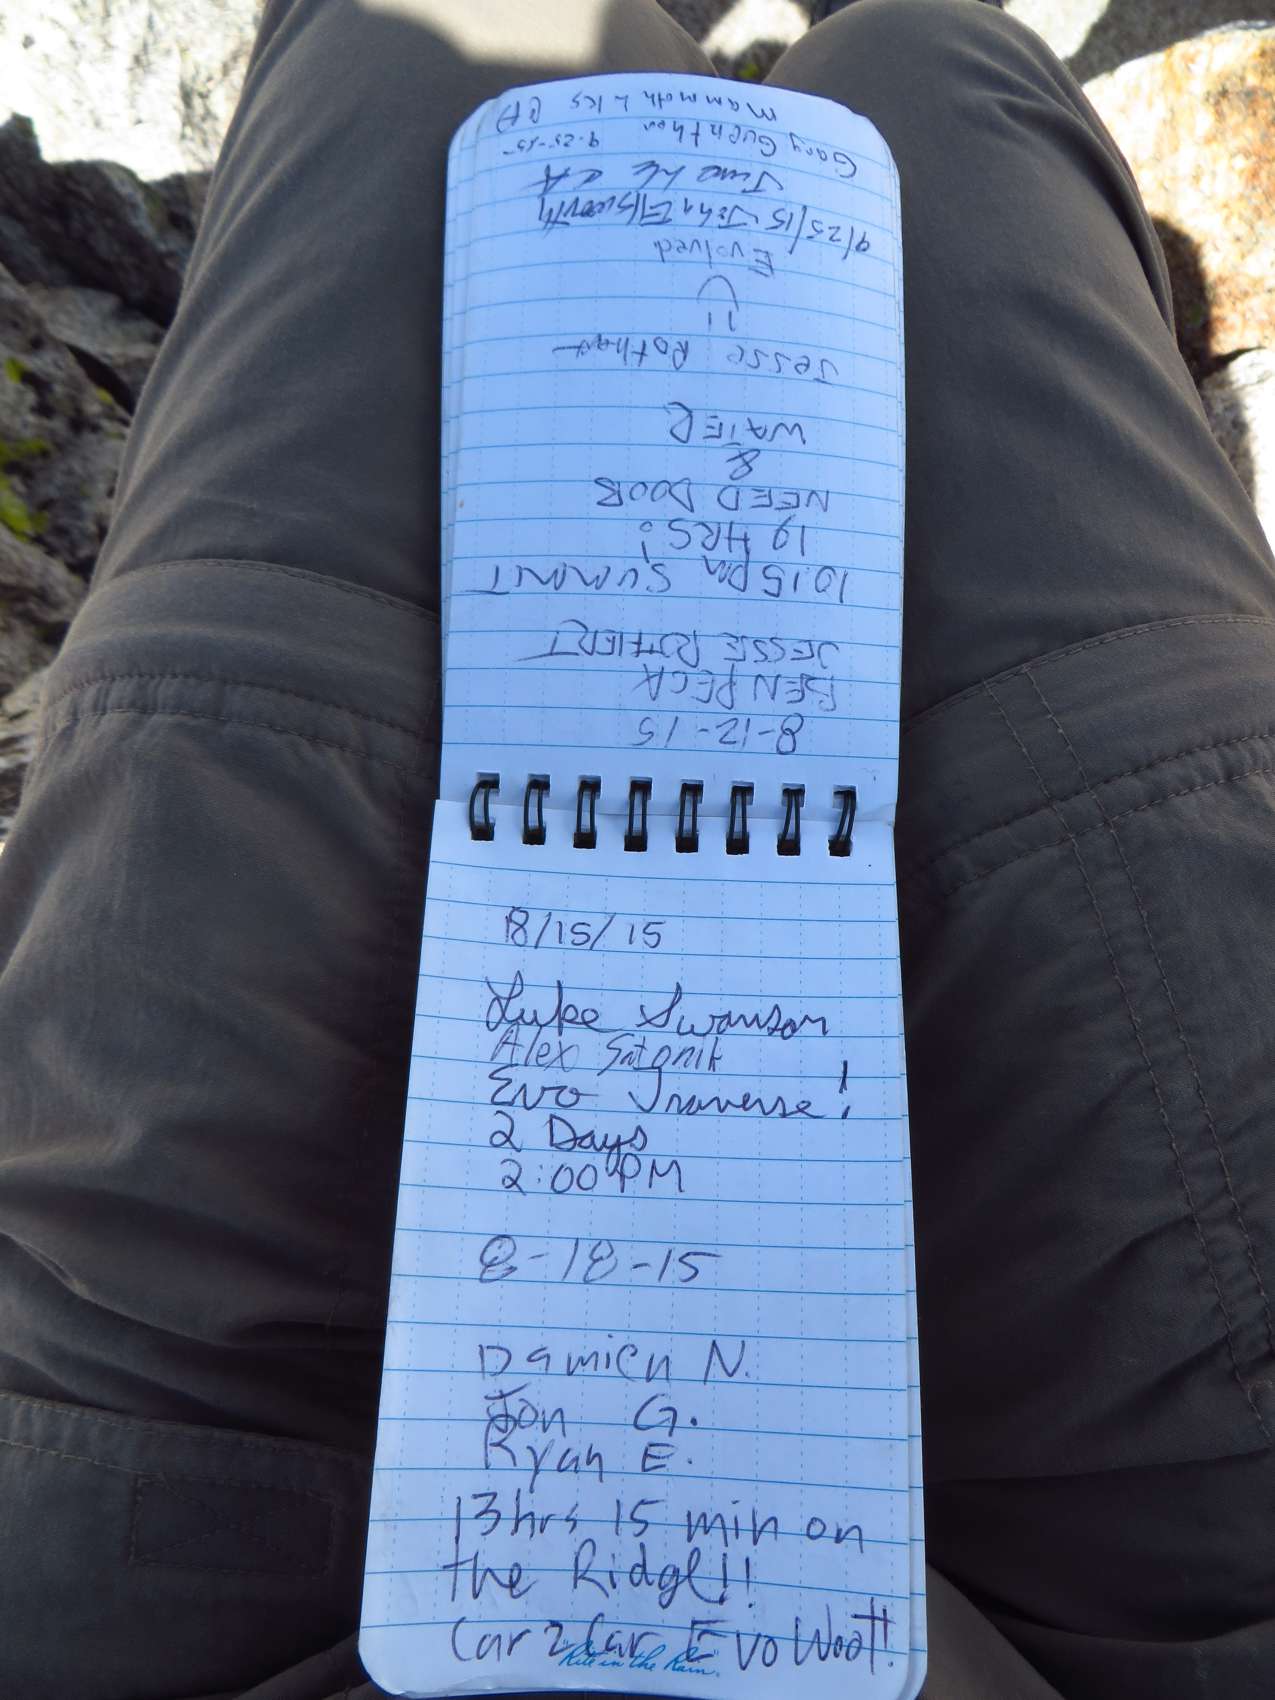 8-12-15
BEN PECK
JESSE ROTHERT
10:15 pm SUMMIT
19 HRS!
NEED DOOB
&
WATER
Jesse Rothert
Evolved
9/25/15 John Ellsworth
June Lk CA
Gary Guenther 9-25-15
Mammoth Lks CA
8/15/15
Luke Swanson
Alex
Evo Traverse!
2 Days
2:00 PM
8-18-15
Damien N.
Jon G.
Ryan E.
13hrs 15 min on
the Ridge!!
Car 2 Car Evo Woot!
"Rite in the Rain"